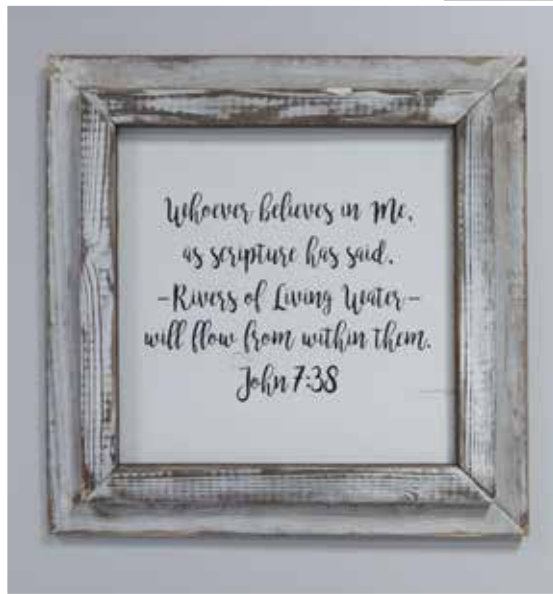 Whoever believes in Me,
as scripture has said,
-Rivers of Living Water-
will flow from within them.
John 7:38